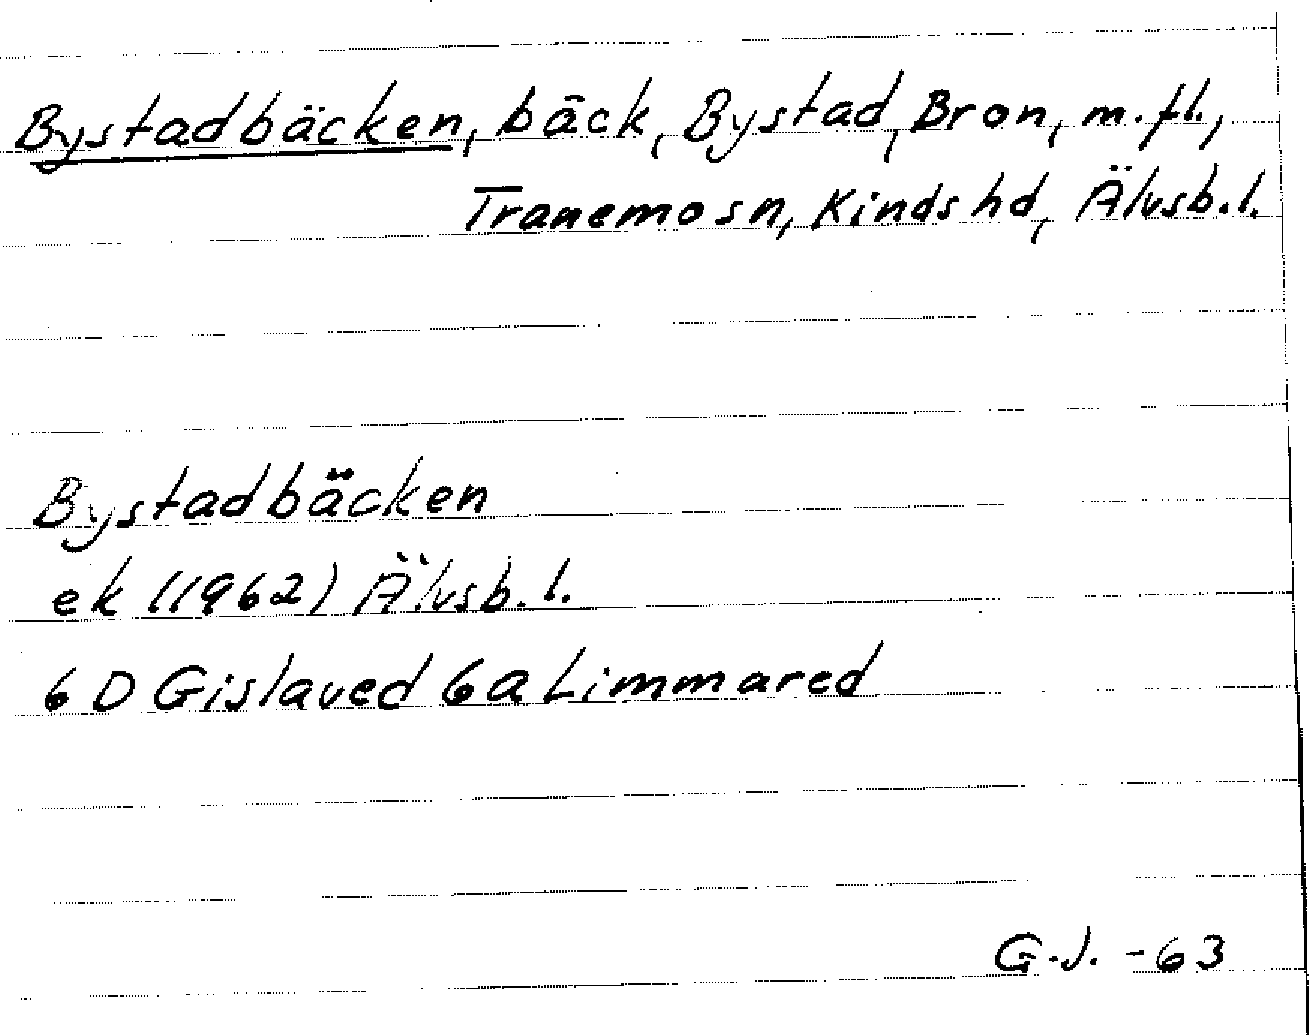 Bystadbäcken, bäck, Bystad, Bron, m.fl.,
Tranemo sn, Kinds hd, Älvsb.l.
Bystadbäcken
ek (1962) Älvsb.l.
6 D Gislaved 6a Limmared
G.J. -63